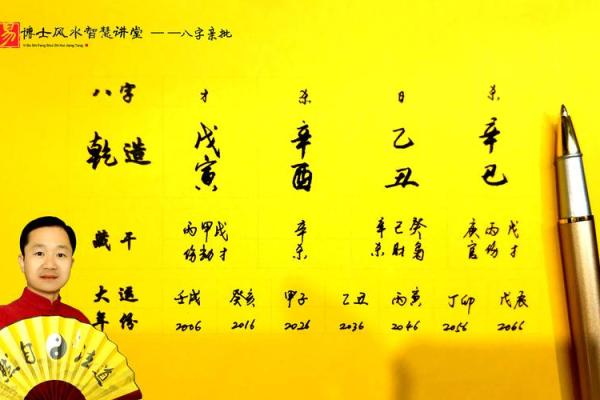 易 博士风水智慧讲堂 ——八字亲批
Yi Bo Shi Feng Shui Zhi Hui Jiang Tang
八字 才 杀 日 杀
乾造 戊寅 辛酉 乙丑 辛巳
藏干 丙甲戊 辛 辛己癸 庚丙戊
伤劫才 杀 杀财枭 官伤才
大运 壬戌 癸亥 甲子 乙丑 丙寅 丁卯 戊辰
年份 2006 2016 2026 2036 2046 2056 2066
然自法道